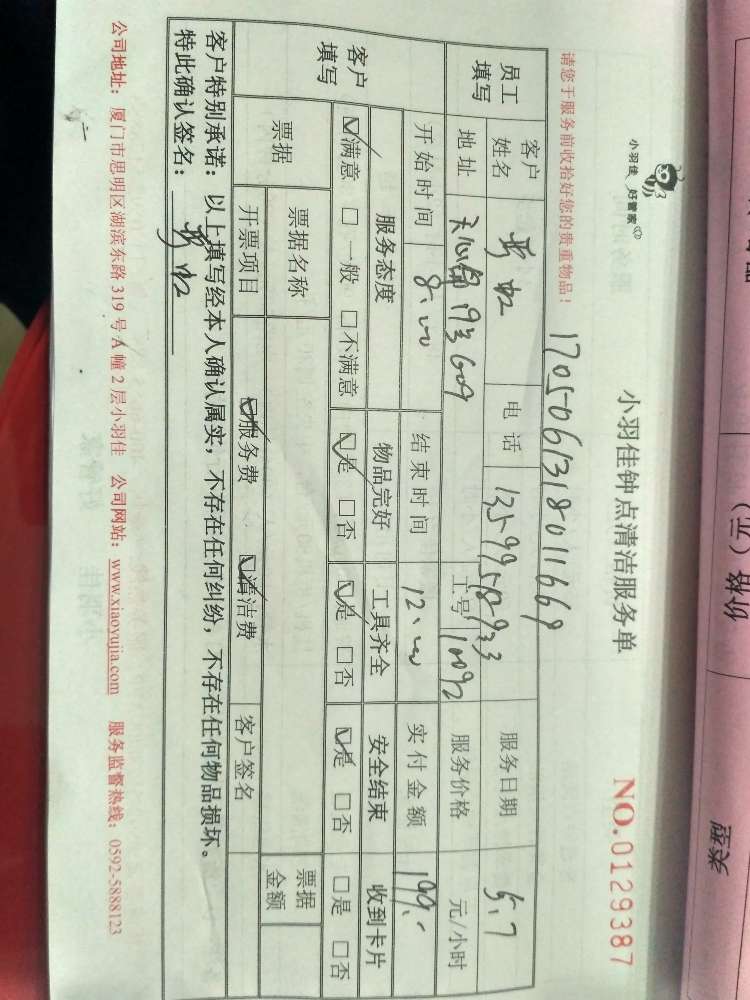 小羽佳 好管家
小羽佳钟点清洁服务单
NO.0129387
请您于服务前收拾好您的贵重物品！
1705061318011669
员工填写
客户姓名
电话
服务日期 5.7
地址
工号 10092
服务价格 元/小时
开始时间 8:00
结束时间 12:00
实付金额 199.-
客户填写
服务态度 物品完好 工具齐全 安全结束 收到卡片
☑满意 □一般 □不满意 ☑是 □否 ☑是 □否 ☑是 □否 □是 □否
票据
票据名称
票据金额
开票项目 ☑服务费 ☑清洁费 客户签名
客户特别承诺：以上填写经本人确认属实，不存在任何纠纷，不存在任何物品损坏。
特此确认签名：
公司地址：厦门市思明区湖滨东路319号A幢2层小羽佳 公司网站：www.xiaoyujia.com 服务监督热线：0592-5888123
价格（元）